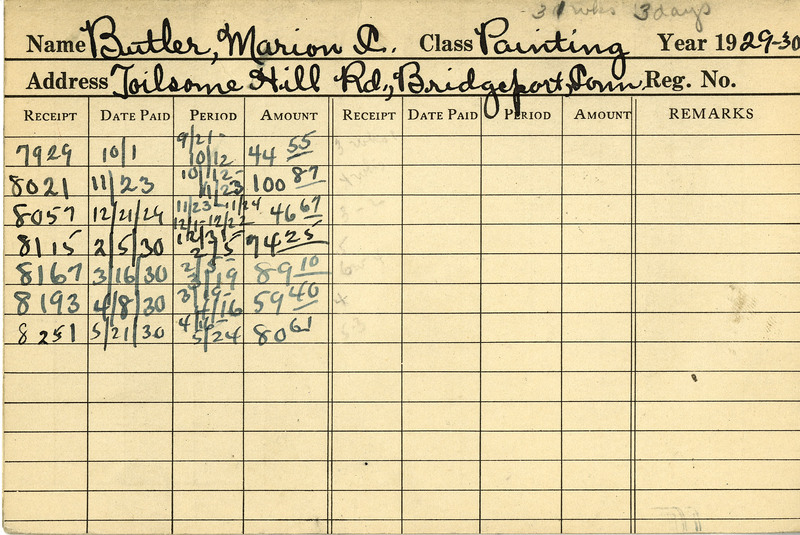 31 wks 3 days
Name Butler, Marion C. Class Painting Year 1929-30
Address Toilsome Hill Rd., Bridgeport, Conn. Reg. No.
RECEIPT DATE PAID PERIOD AMOUNT RECEIPT DATE PAID PERIOD AMOUNT REMARKS
7929 10/1 9/21- 10/12 44 55
8021 11/23 10/12- 11/23 100 87
8057 12/21/24 11/23-11/24 12/1-12/22 46 67
8115 2/5/30 2/5 74 25
8167 3/16/30 3/19 89 10
8193 4/8/30 3/19- 4/16 59 40
8251 5/21/30 4/16- 5/24 80 61